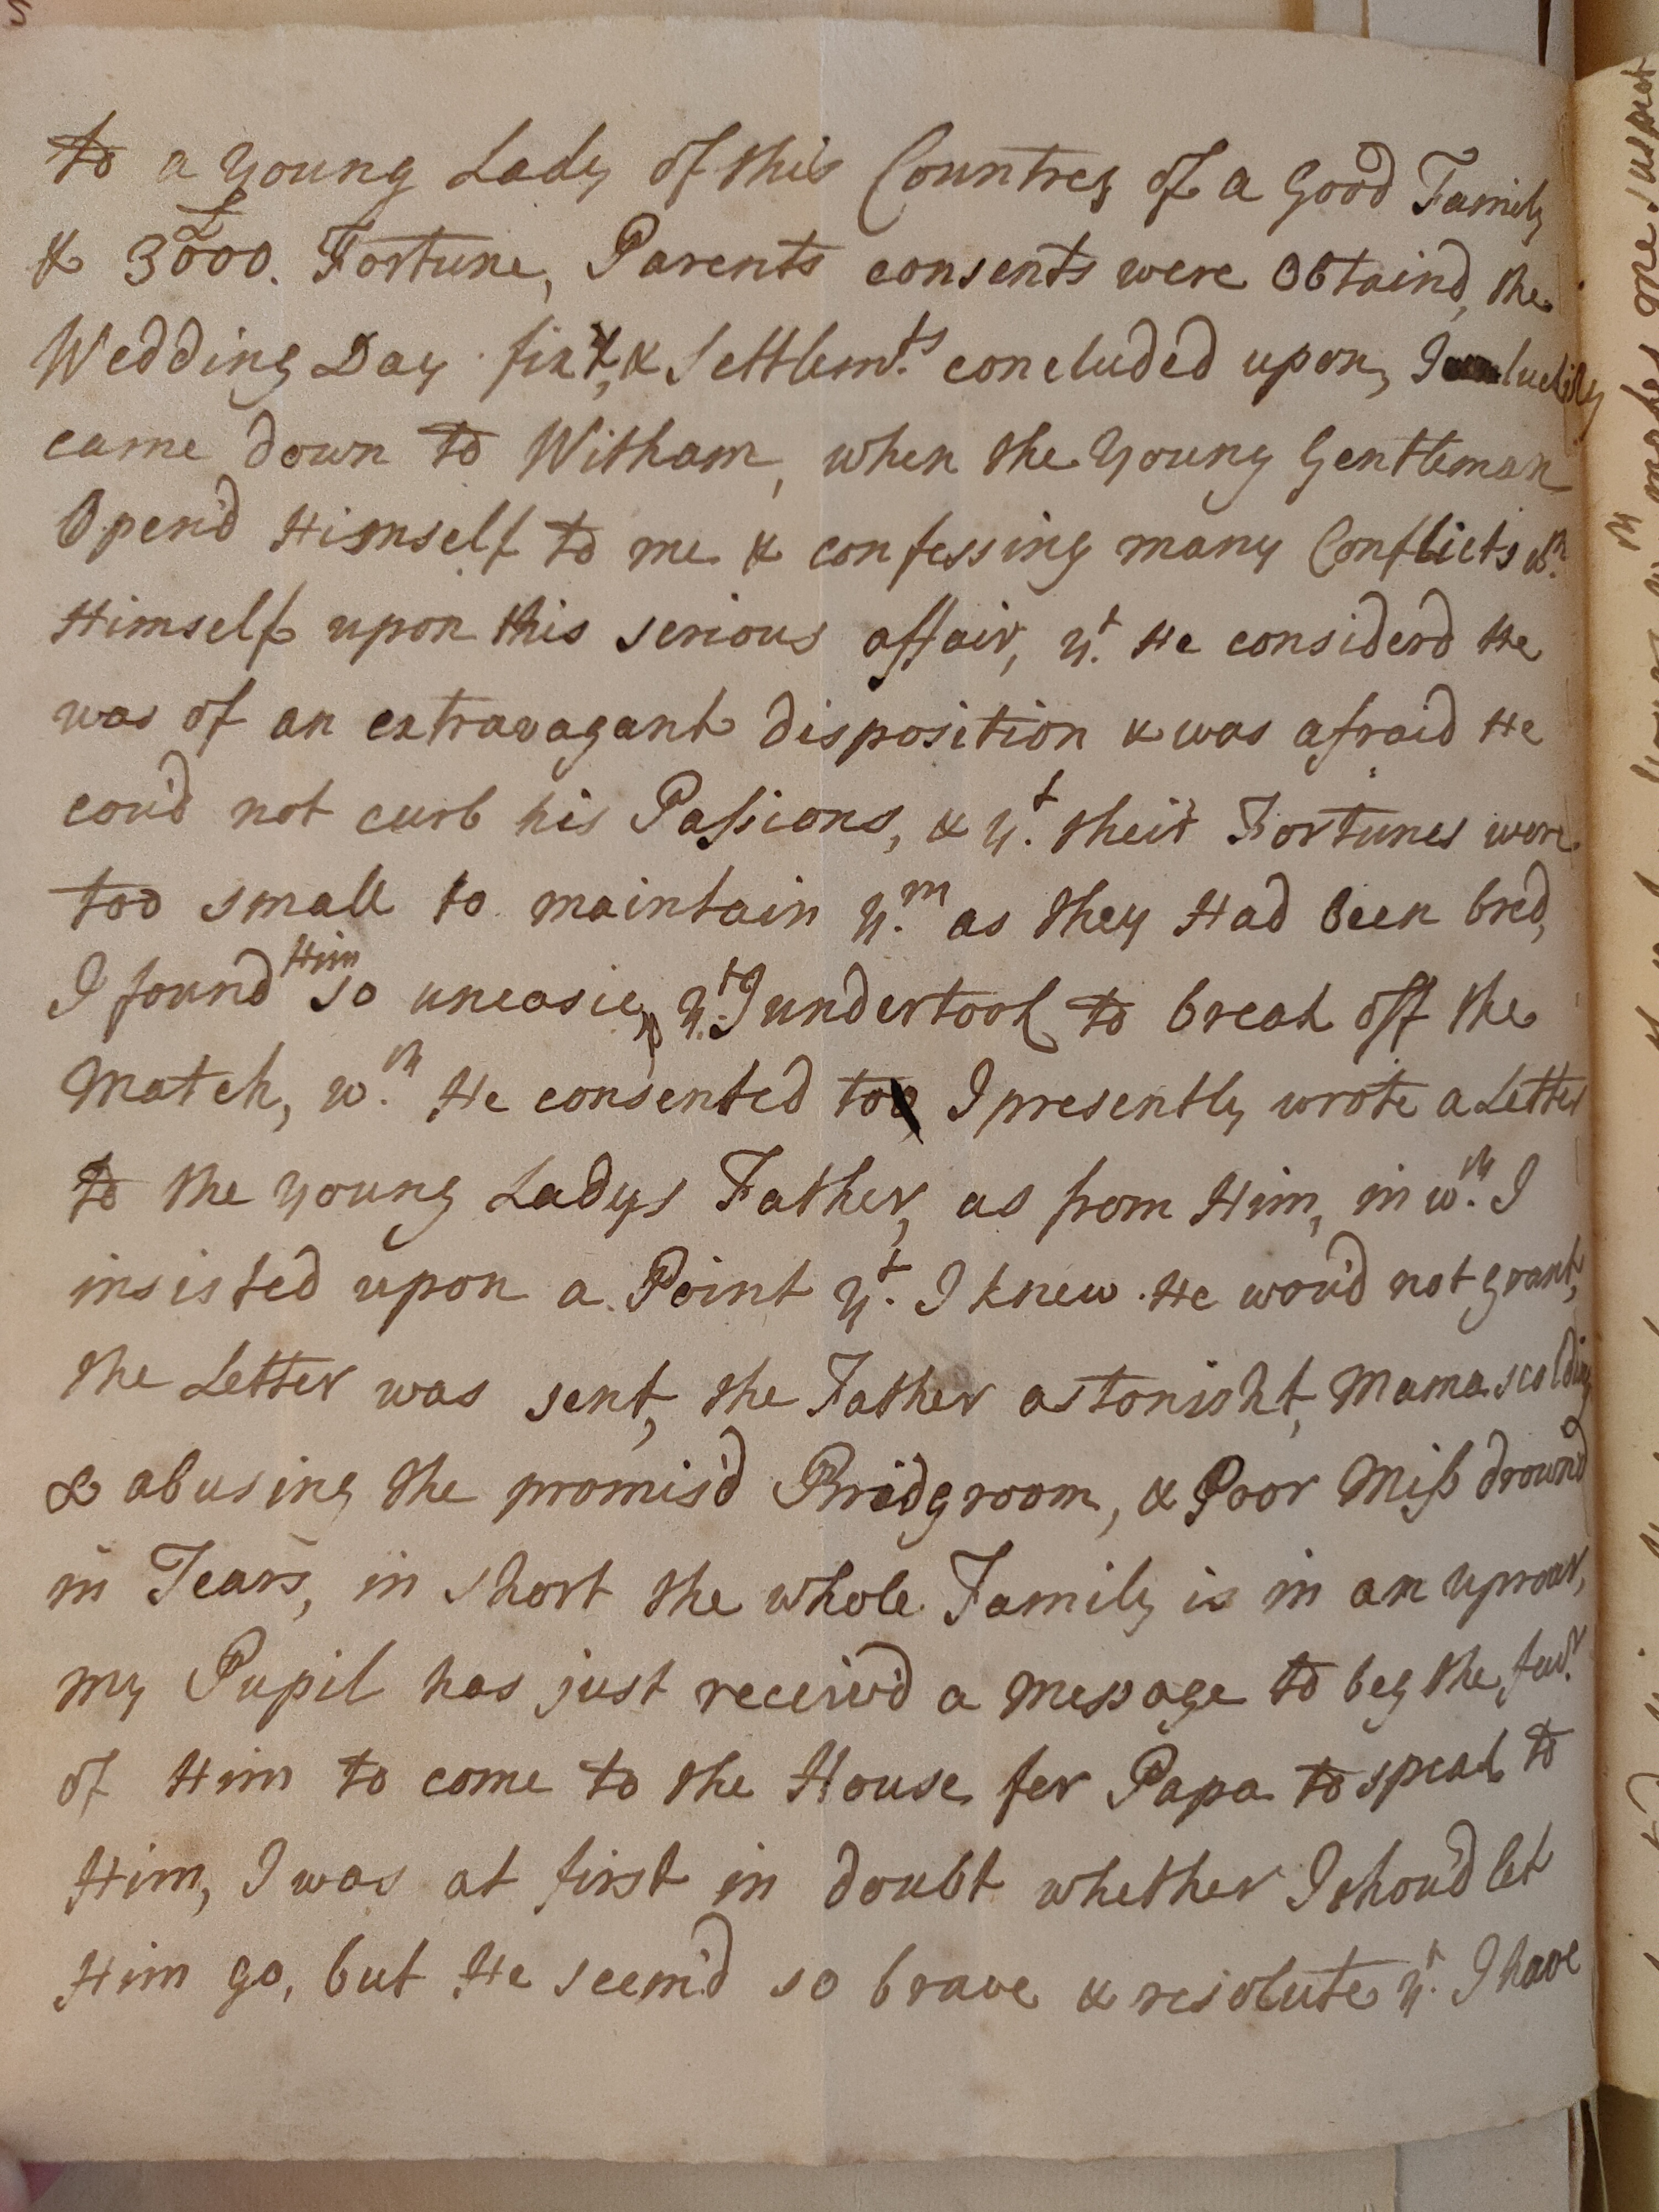 to a young Lady of this Countrey of a Good Family
& 3000£. Fortune, Parents consents were Obtaind, the
Wedding Day fixt, & Settlemts. concluded upon, I luckily
came down to Witham, when the Young Gentleman
Open'd Himself to me & confessing many Conflicts wth.
Himself upon this serious affair, yt. He considerd He
was of an extravagant disposition & was afraid He
cou'd not curb his Passions, & yt. their Fortunes were
too small to maintain ym. as they Had been bred,
I found Him so uneasie, yt. I undertook to break off the
Match, wch. He consented to, I presently wrote a Letter
to the young Ladys Father, as from Him, in wch. I
insisted upon a Point yt. I knew He wou'd not grant,
the Letter was sent, the Father astonisht, Mama scolding
& abusing the promis'd Bridgroom, & Poor Miss drown'd
in Tears, in short the whole Family is in an uproar,
my Pupil has just receiv'd a Message to beg the favr.
of Him to come to the House for Papa to speak to
Him, I was at first in doubt whether I shou'd let
Him go, but He seem'd so brave & resolute yt. I have